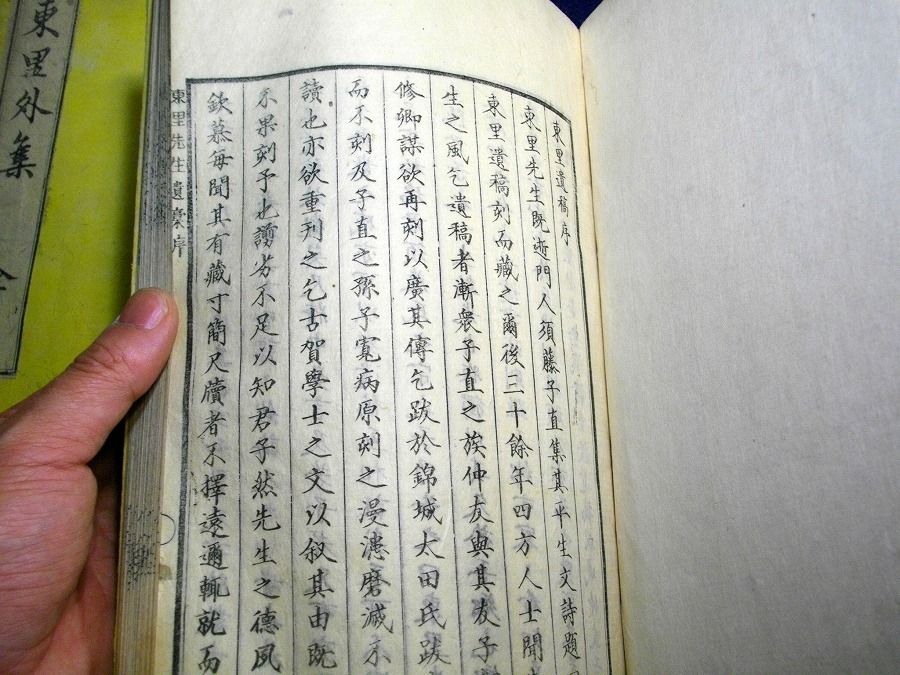 東里遺稿序
東里先生既逝門人須藤子直集其平生文詩題
東里遺稿刻而藏之爾後三十餘年四方人士聞
生之風乞遺稿者漸衆子直之族仲友與其友子
修卿謀欲再刻以廣其傳乞跋於錦城太田氏跋
而不刻及子直之孫子寛病原刻之漫漶磨滅不
讀也亦欲重刊之乞古賀學士之文以叙其由既
不果刻予也謭劣不足以知君子然先生之德風
欽慕每聞其有藏寸簡尺牘者不擇遠邇輒就而
東里先生遺稾序
東里外集
全